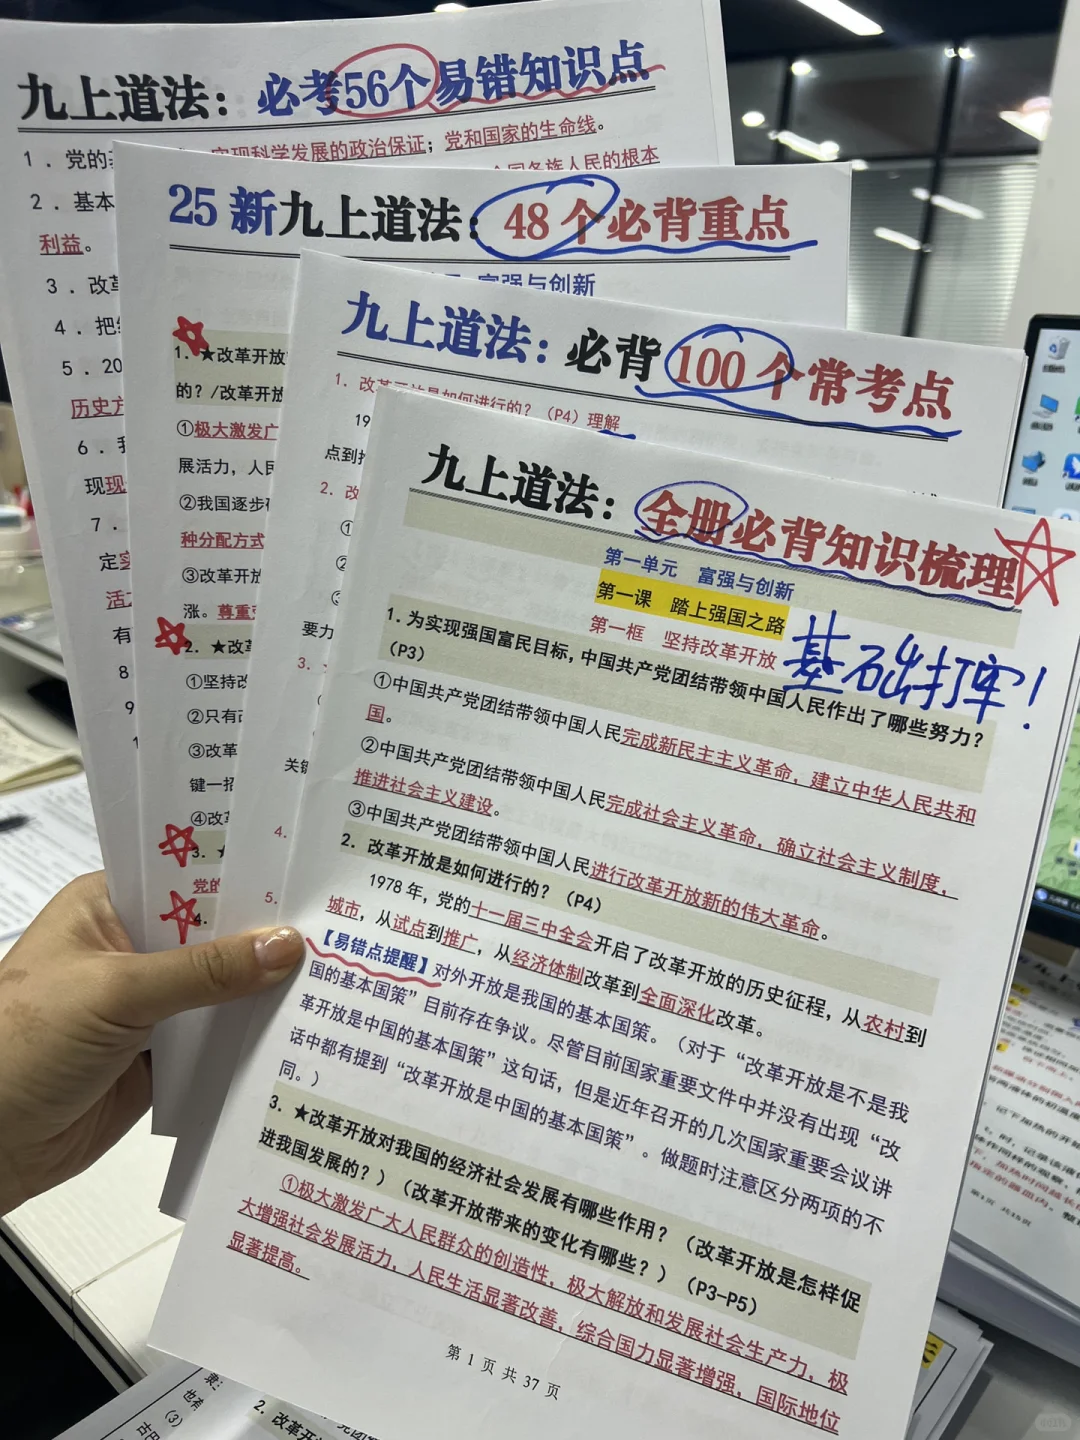 九上道法：必考56个易错知识点
1．党的
实现科学发展的政治保证；党和国家的生命线。
2．基本
全国各族人民的根本
利益。
3．改革
4．把
5．20
历史方
6．我
现现
7．
定实
活力
有
8
9
25新九上道法：48个必背重点
富强与创新
1.★改革开放
的？/改革开放
①极大激发广
展活力，人民
②我国逐步
种分配方式
③改革开放
涨。尊重
2.★改革
①坚持改
②只有改
③改革
键一招
④改革
3.★
党的
4.
九上道法：必背100个常考点
1．改革开放是如何进行的？（P4）理解
19
点到
2．改
①
②
③
要力
3．
（
关键
4.
5.
九上道法：全册必背知识梳理
第一单元 富强与创新
第一课 踏上强国之路
第一框 坚持改革开放
基础打牢！
1.为实现强国富民目标，中国共产党团结带领中国人民作出了哪些努力？
（P3）
①中国共产党团结带领中国人民完成新民主主义革命，建立中华人民共和
国。
②中国共产党团结带领中国人民完成社会主义革命，确立社会主义制度，
推进社会主义建设。
③中国共产党团结带领中国人民进行改革开放新的伟大革命。
2．改革开放是如何进行的？（P4）
1978年，党的十一届三中全会开启了改革开放的历史征程，从农村到
城市，从试点到推广，从经济体制改革到全面深化改革。
【易错点提醒】对外开放是我国的基本国策。（对于“改革开放是不是我
国的基本国策”目前存在争议。尽管目前国家重要文件中并没有出现“改
革开放是中国的基本国策”这句话，但是近年召开的几次国家重要会议讲
话中都有提到“改革开放是中国的基本国策”。做题时注意区分两项的不
同。）
3．★改革开放对我国的经济社会发展有哪些作用？（改革开放是怎样促
进我国发展的？）（改革开放带来的变化有哪些？）（P3-P5）
①极大激发广大人民群众的创造性，极大解放和发展社会生产力，极
大增强社会发展活力，人民生活显著改善，综合国力显著增强，国际地位
显著提高。
第 1 页 共 37 页